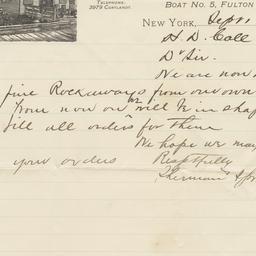 TELEPHONE:
3979 CORTLANDT.
BOAT No. 5, FULTON
NEW YORK, Sept
H. D. Call
Dr Sir.
We are now
fine Rockaways from our own
from now on will be in shap
fill all orders for them
We hope we may
your orders
Respectfully